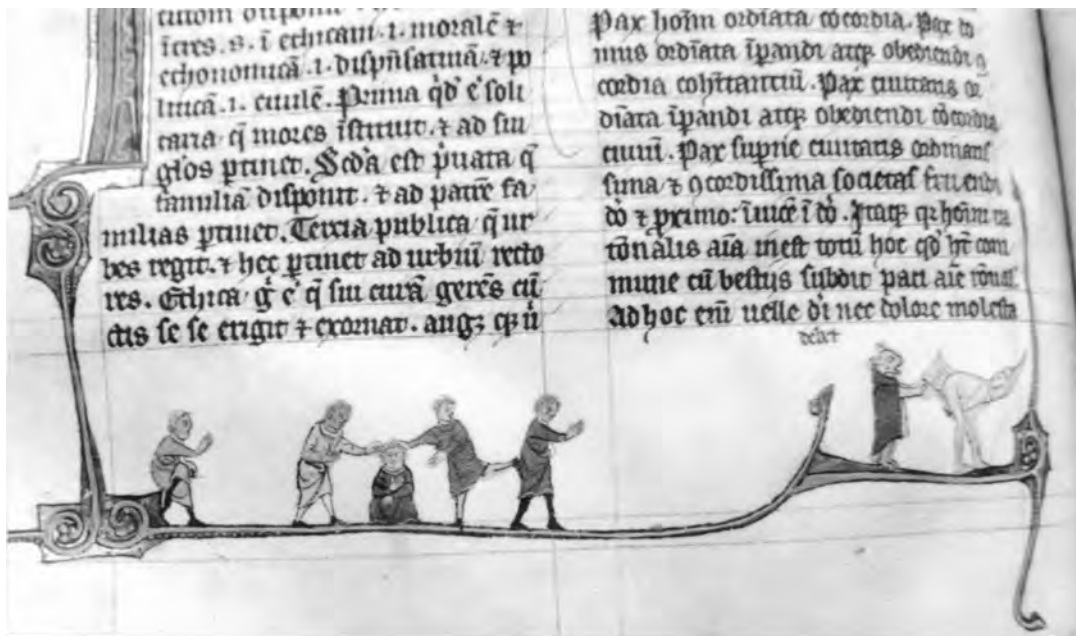 īcres. s. ī ethicam .i. moralē ⁊
echonomicā .i. dispn̄satiuā. ⁊ po
liticā .i. ciuilē. Prima qd' ē soli
taria q̄ mores īstituit. ⁊ ad sin
glos ptinet. Sc̄da est p̄uata q̄
familiā disponit. ⁊ ad patrē fa
milias ptinet. Tercia publica q̄ ur
bes regit. ⁊ hec ptinet ad urbiū recto
res. Ethica ē q̄ sui curā gerēs cū
ctis se se erigit ⁊ exornat.
Pax hoīm ordīata cōcordia. Pax do
mus ordīata īpandi atq; obediendi ꝯ
cordia cohītantiū. Pax ciuitatis or
dīata īpandi atq; obediendi cōcordia
ciuiū. Pax sup̄ne ciuitatis ordinatis
sima ⁊ ꝯcordissima societas fruendi
dō ⁊ ī dō. Itaq; q̄ hoīm ra
tōnalis aīa inest totū hoc qd' ht̄ com
mune cū bestiis subdit paci aīe rōnal
ad hoc enī uelle dī nec dolore molesta